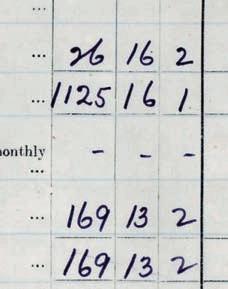 ...
... 26 16 2
... 1125 16 1
onthly - - -
...
... 169 13 2
... 169 13 2